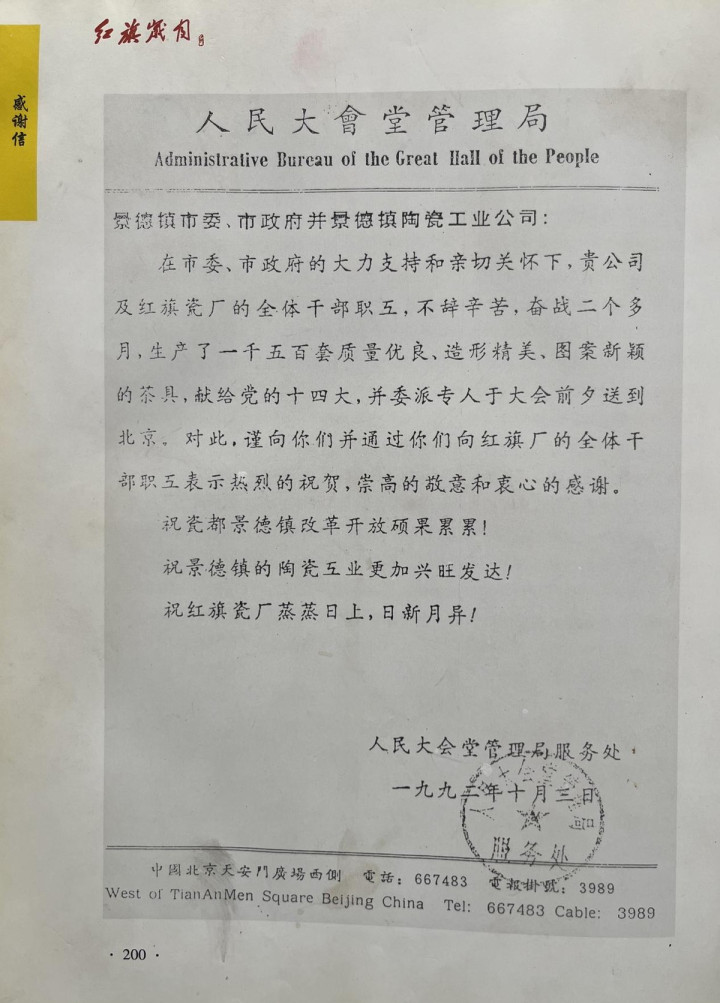 红旗岁月
感谢信
人民大會堂管理局
Administrative Bureau of the Great Hall of the People
景德镇市委、市政府并景德镇陶瓷工业公司：
在市委、市政府的大力支持和亲切关怀下，贵公司
及红旗瓷厂的全体干部职工，不辞辛苦，奋战二个多
月，生产了一千五百套质量优良、造形精美、图案新颖
的茶具，献给党的十四大，并委派专人于大会前夕送到
北京。对此，谨向你们并通过你们向红旗厂的全体干
部职工表示热烈的祝贺，崇高的敬意和衷心的感谢。
祝瓷都景德镇改革开放硕果累累！
祝景德镇的陶瓷工业更加兴旺发达！
祝红旗瓷厂蒸蒸日上，日新月异！
人民大会堂管理局服务处
一九九二年十月三日
服务处
中國北京天安門廣場西側 電話：667483 電報掛號：3989
West of TianAnMen Square Beijing China Tel: 667483 Cable: 3989
· 200 ·